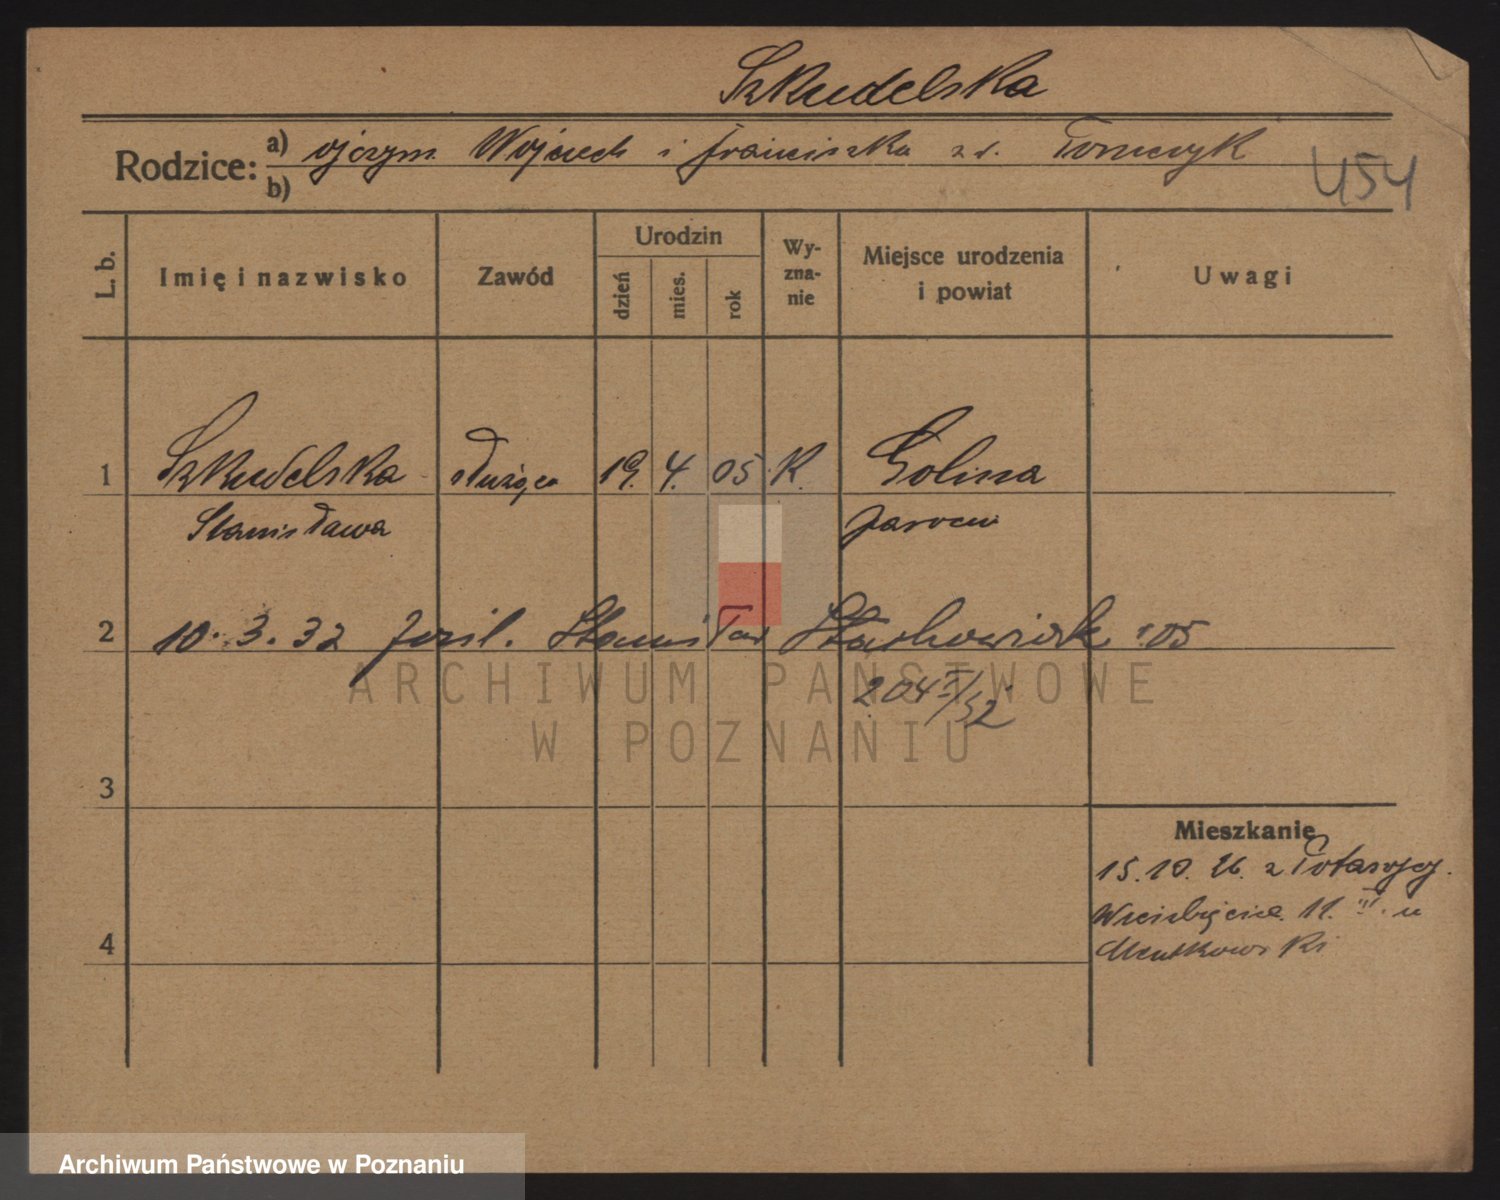 Szkudelska
Rodzice: a) ojczym Wojciech i Franciszka z d. Tomczyk
b)
454
L. b. Imię i nazwisko Zawód Urodzin dzień mies. rok Wy-zna-nie Miejsce urodzenia i powiat Uwagi
1 Szkudelska służąca 19. 4. 05 K. Golina
Stanisława Jarocin
2 10. 3. 32 Stanisław Stachowiak 05
204 I/32
ARCHIWUM PAŃSTWOWE
W POZNANIU
3
Mieszkanie
15. 10. 26. z
11. III. u
4
Archiwum Państwowe w Poznaniu